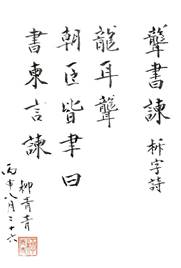 聾書諫 拆字詩
龍耳聾
朝臣皆聿曰
書柬言諫
丙申八月二十六
柳青青